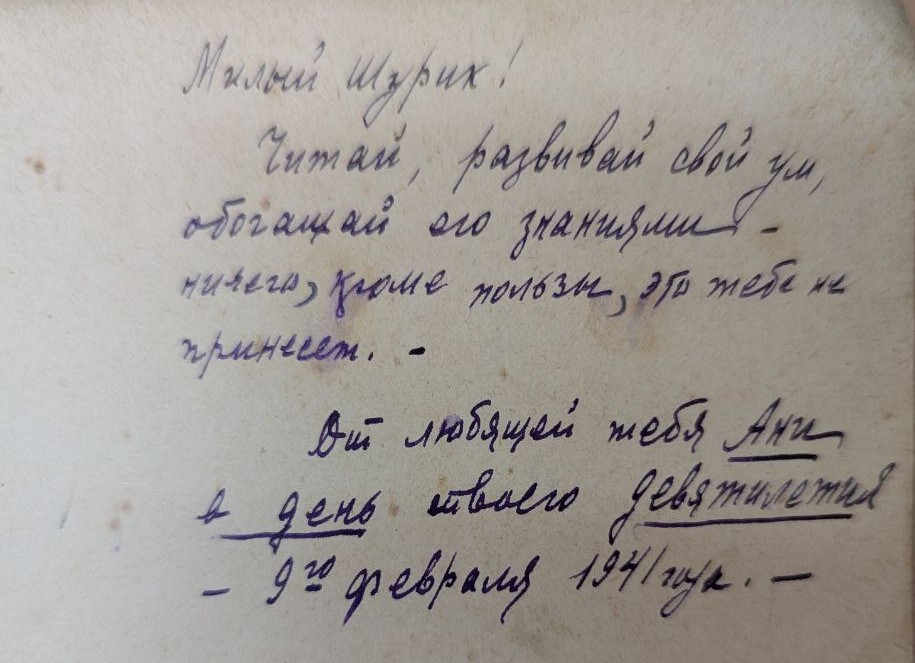 Милый Шурик!
Читай, развивай свой ум,
обогащай его знаниями -
ничего, кроме пользы, это тебе не
принесет. -
От любящей тебя Ани
в день твоего девятилетия
- 9го февраля 1941 года. -